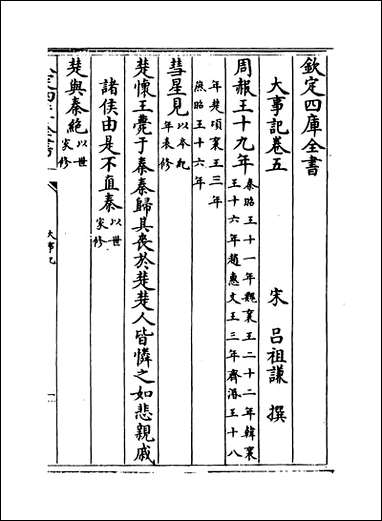 欽定四庫全書
大事記卷五
宋 呂祖謙 撰
周赧王十九年秦昭王十一年魏襄王二十二年韓襄
王十六年趙惠文王三年齊湣王十八
年楚頃襄王三年
燕昭王十六年
彗星見以本紀
年表修
楚懷王薨于秦秦歸其喪於楚楚人皆憐之如悲親戚
諸侯由是不直秦以世
家修
楚與秦絶以世
家修
大事記